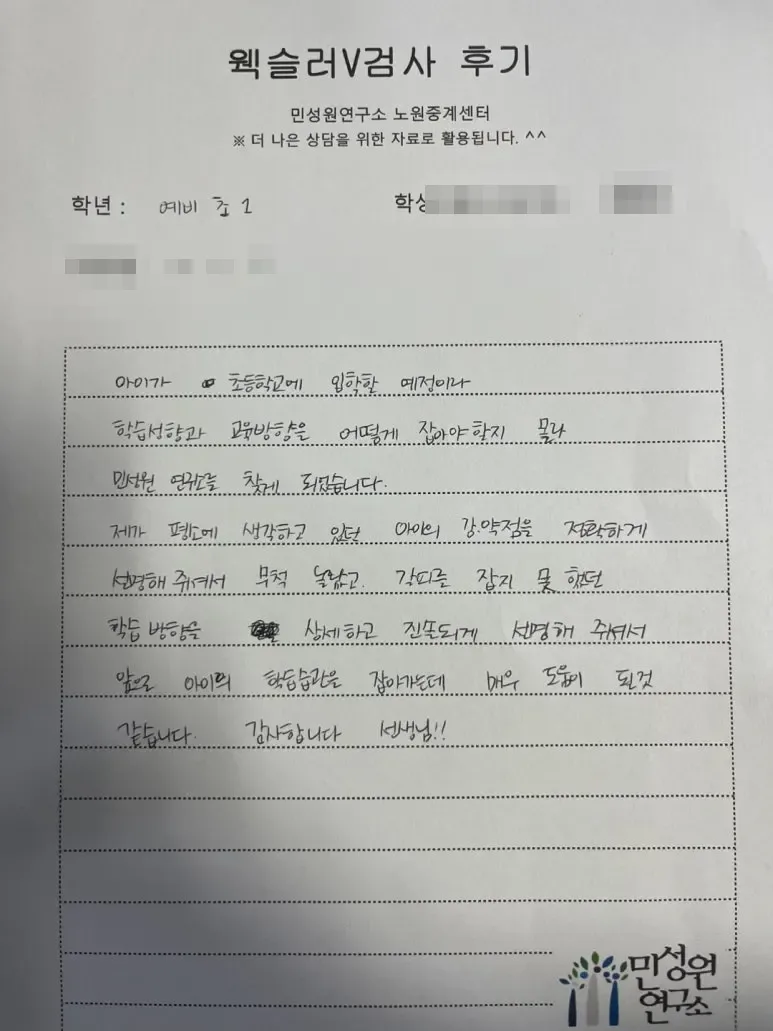 웩슬러V검사 후기
민성원연구소 노원중계센터
※ 더 나은 상담을 위한 자료로 활용됩니다. ^^
학년 : 예비 초 1
아이가 초등학교에 입학할 예정이라
학습성향과 교육방향을 어떻게 잡아야할지 몰라
민성원 연구소를 찾게 되었습니다.
제가 평소에 생각하고 있던 아이의 강.약점을 정확하게
설명해 주셔서 무척 놀랐고. 갈피를 잡지 못했던
학습 방향을 상세하고 진솔되게 설명해 주셔서
앞으로 아이의 학습습관을 잡아가는데 매우 도움이 된것
같습니다. 감사합니다 선생님!!
민성원
연구소